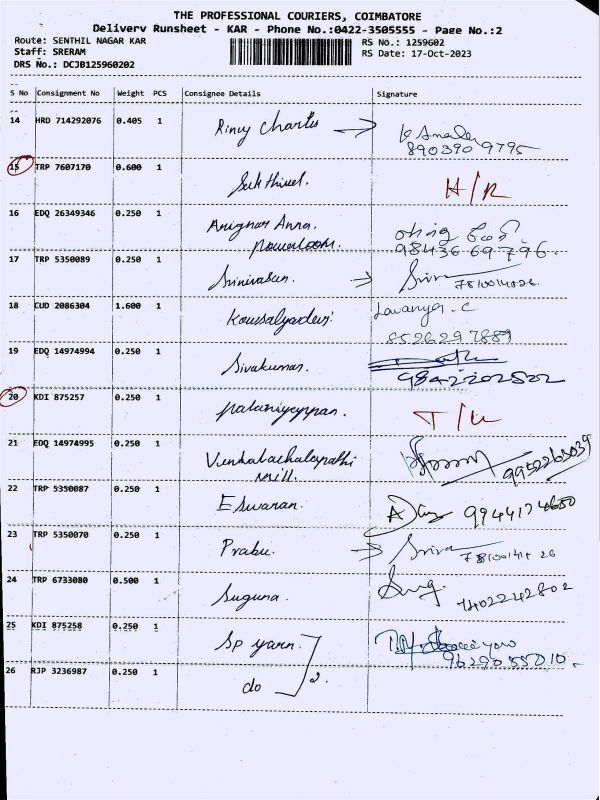 THE PROFESSIONAL COURIERS, COIMBATORE
Delivery Runsheet - KAR - Phone No.:0422-3505555 - Page No.:2
Route: SENTHIL NAGAR KAR RS No.: 1259602
Staff: SRERAM RS Date: 17-Oct-2023
DRS No.: DCJB125960202
S No Consignment No Weight PCS Consignee Details Signature
14 HRD 714292076 0.405 1 Rincy Charles
890390 9795
15 TRP 7607170 0.600 1 Sukthivel. H/R
16 EDQ 26349346 0.250 1 Arignar Anna.
Powerloom. 98436 69796.
17 TRP 5350089 0.250 1 Srinivasan. Sriva
18 CUD 2086304 1.600 1 Kousalyadevi. Lavanya. C
8526297889
19 EDQ 14974994 0.250 1 Sivakumar. 9842202522
20 KDI 875257 0.250 1 Palaniyappan.
21 EDQ 14974995 0.250 1 Venkatachalapathi
mill. 9952263039
22 TRP 5350087 0.250 1 Eswaran. 9944174650
23 TRP 5350070 0.250 1 Prabu. Sriva
24 TRP 6733080 0.500 1 Suguna. Sug. 7402242802
25 KDI 875258 0.250 1 Sp yarn. 9629055010.
26 RJP 3236987 0.250 1 do 2.